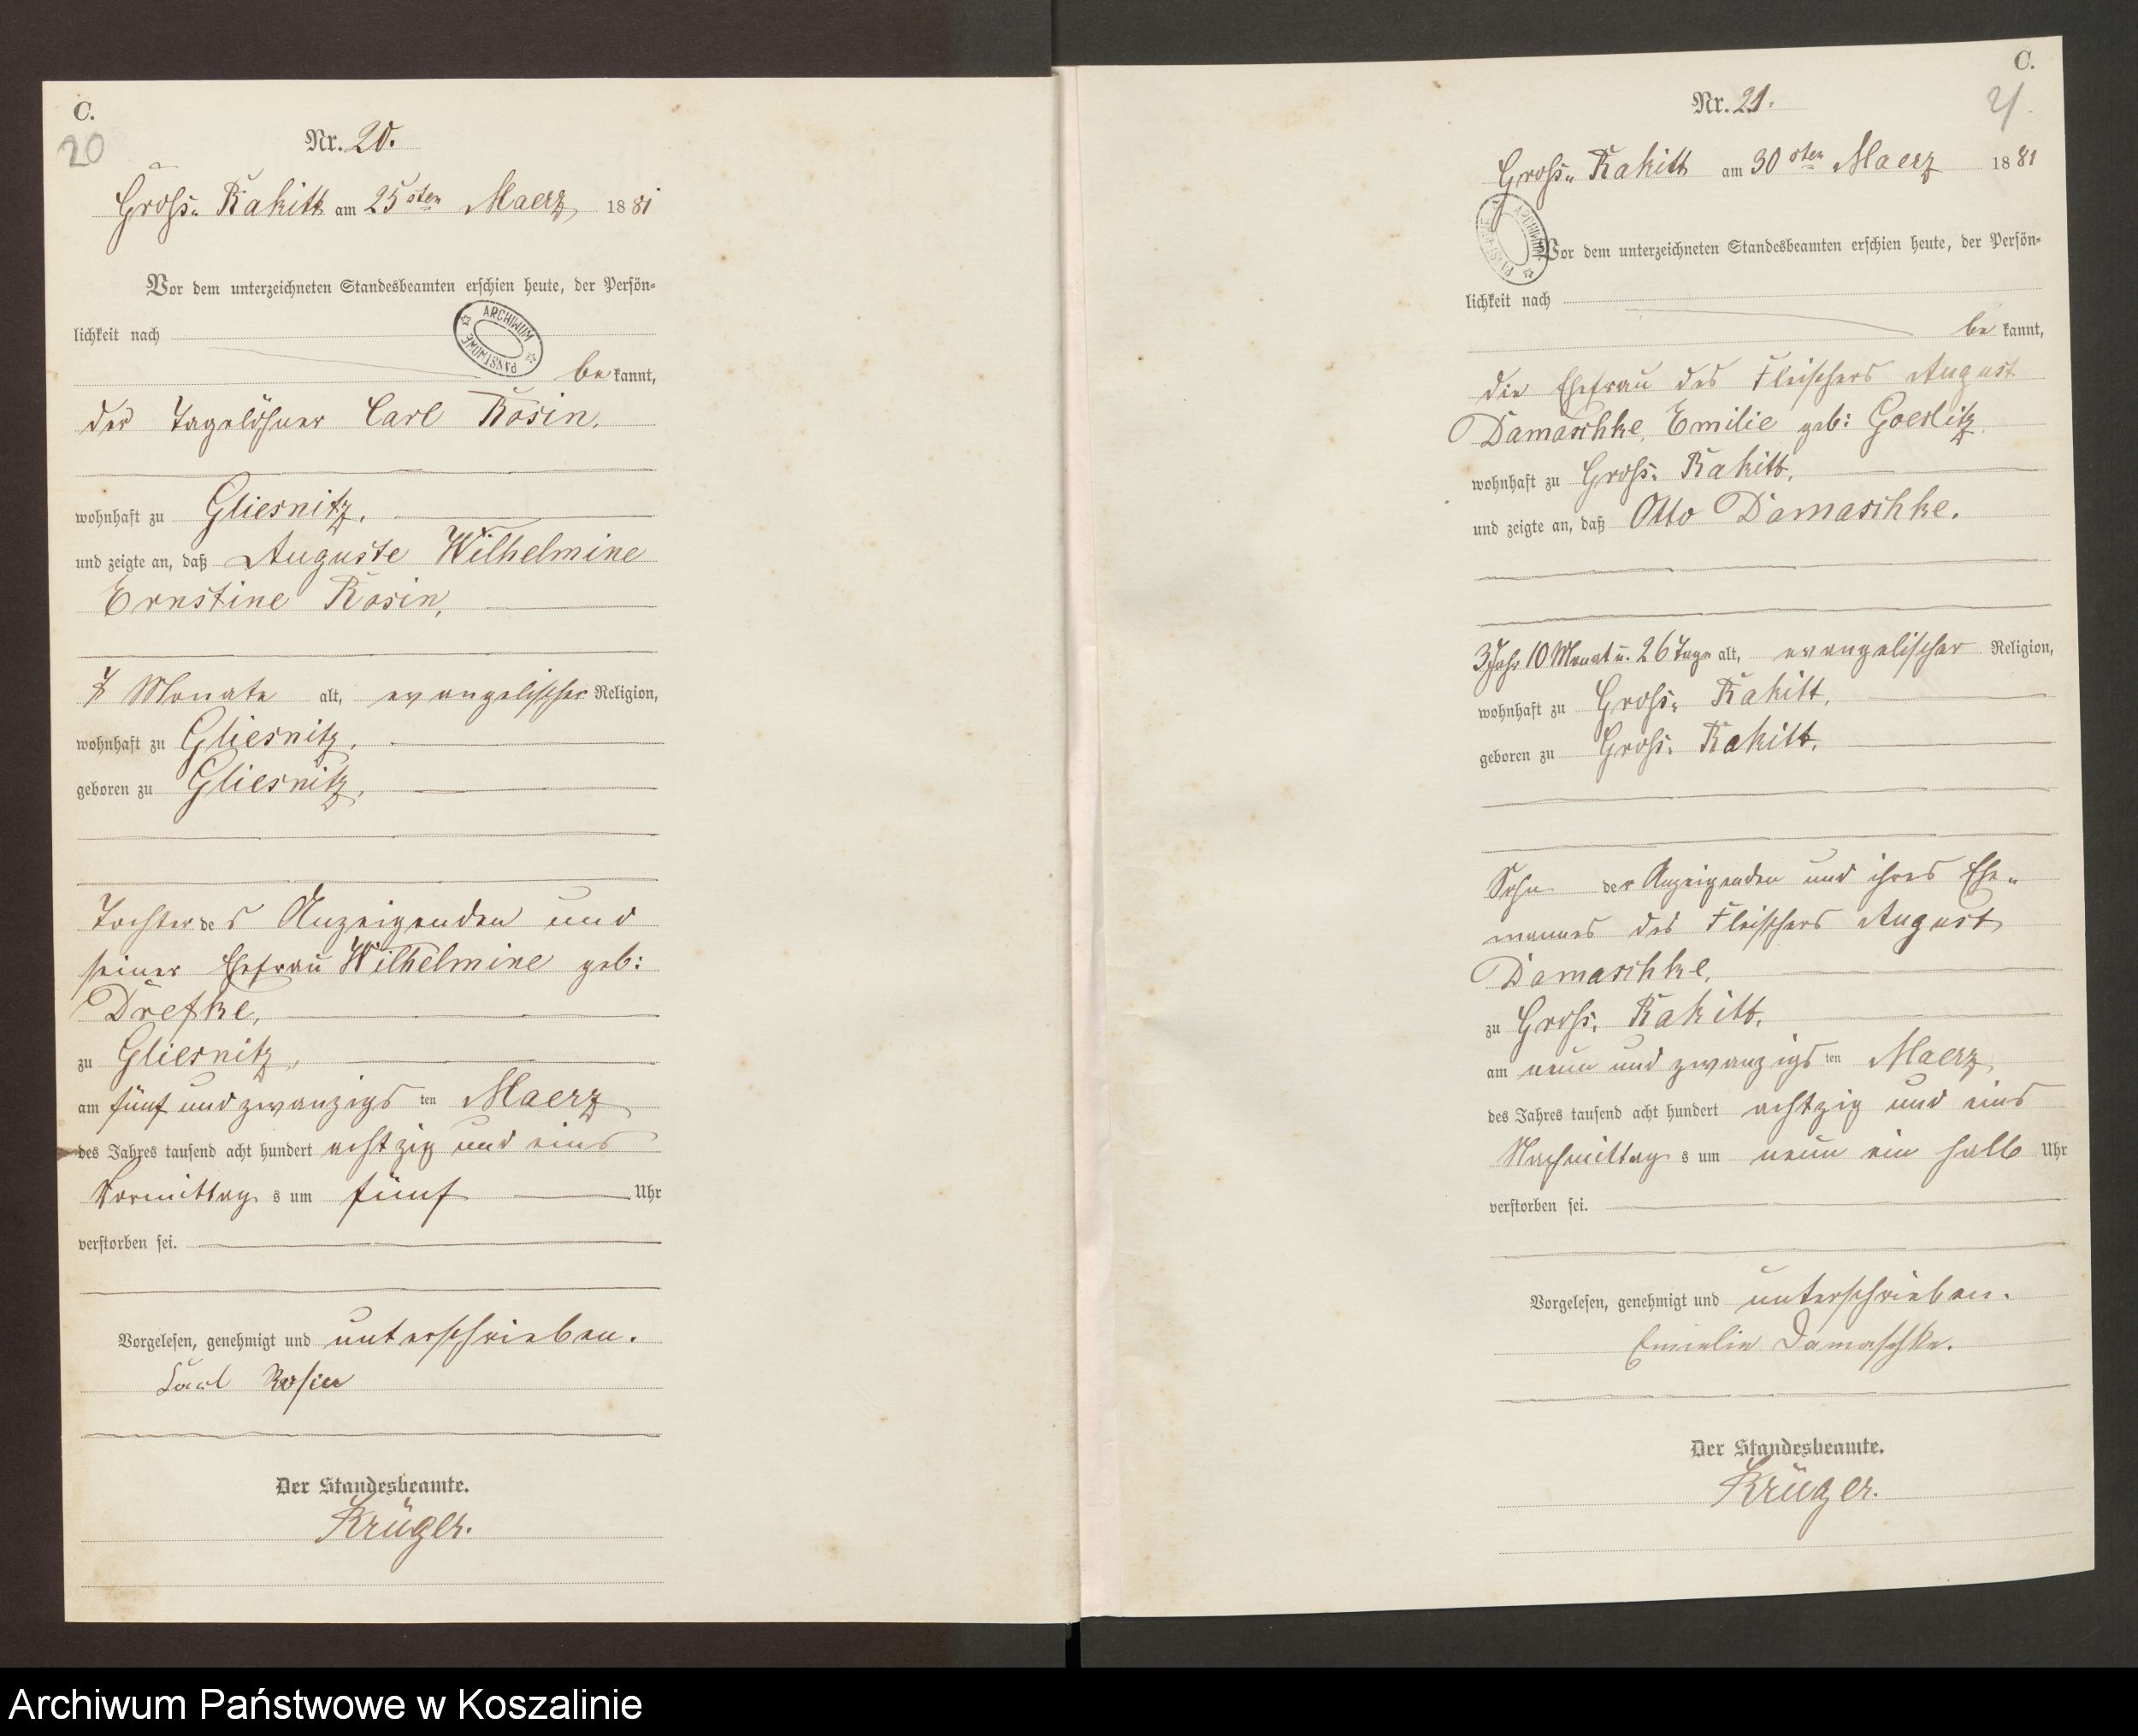 C.
20
Nr. 20.
Gross- Rakitt am 25sten Maerz 1881
Vor dem unterzeichneten Standesbeamten erschien heute, der Persön-
lichkeit nach
ARCHIWUM PAŃSTWOWE
be kannt,
der Tagelöhner Carl Rosin,
wohnhaft zu Gliesnitz,
und zeigte an, daß Auguste Wilhelmine
Ernstine Rosin,
Monate alt, evangelischer Religion,
wohnhaft zu Gliesnitz,
geboren zu Gliesnitz,
Tochter des Anzeigenden und
seiner Ehefrau Wilhelmine geb:
Drefke,
zu Gliesnitz,
am fünf und zwanzigs ten Maerz
des Jahres tausend acht hundert achtzig und eins
Vormittag s um fünf Uhr
verstorben sei.
Vorgelesen, genehmigt und unterschrieben.
Carl Rosin
Der Standesbeamte.
Krüger.
C.
21.
Nr. 21.
Gross- Rakitt am 30sten Maerz 1881
ARCHIWUM PAŃSTWOWE
Vor dem unterzeichneten Standesbeamten erschien heute, der Persön-
lichkeit nach
be kannt,
die Ehefrau des Fleischers August
Damaschke, Emilie geb: Goerlitz
wohnhaft zu Gross- Rakitt,
und zeigte an, daß Otto Damaschke.
3 Jahr 10 Monat u. 26 Tage alt, evangelischer Religion,
wohnhaft zu Gross- Rakitt,
geboren zu Gross- Rakitt,
Sohn der Anzeigenden und ihres Ehe-
mannes des Fleischers August
Damaschke,
zu Gross- Rakitt,
am neun und zwanzigs ten Maerz
des Jahres tausend acht hundert achtzig und eins
Nachmittag s um neun ein halb Uhr
verstorben sei.
Vorgelesen, genehmigt und unterschrieben.
Emielie Damaschke.
Der Standesbeamte.
Krüger.
Archiwum Państwowe w Koszalinie